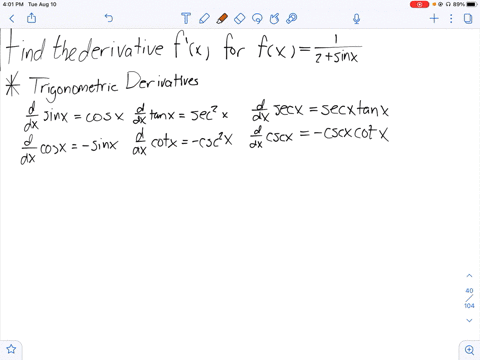 4:01 PM Tue Aug 10
89%
Find the derivative f'(x) for f(x) = 1/(2+sinx)
* Trigonometric Derivatives
d/dx sinx = cosx d/dx tanx = sec² x d/dx secx = secx tanx
d/dx cosx = -sinx d/dx cotx = -csc² x d/dx cscx = -cscx cot² x
40
/
104